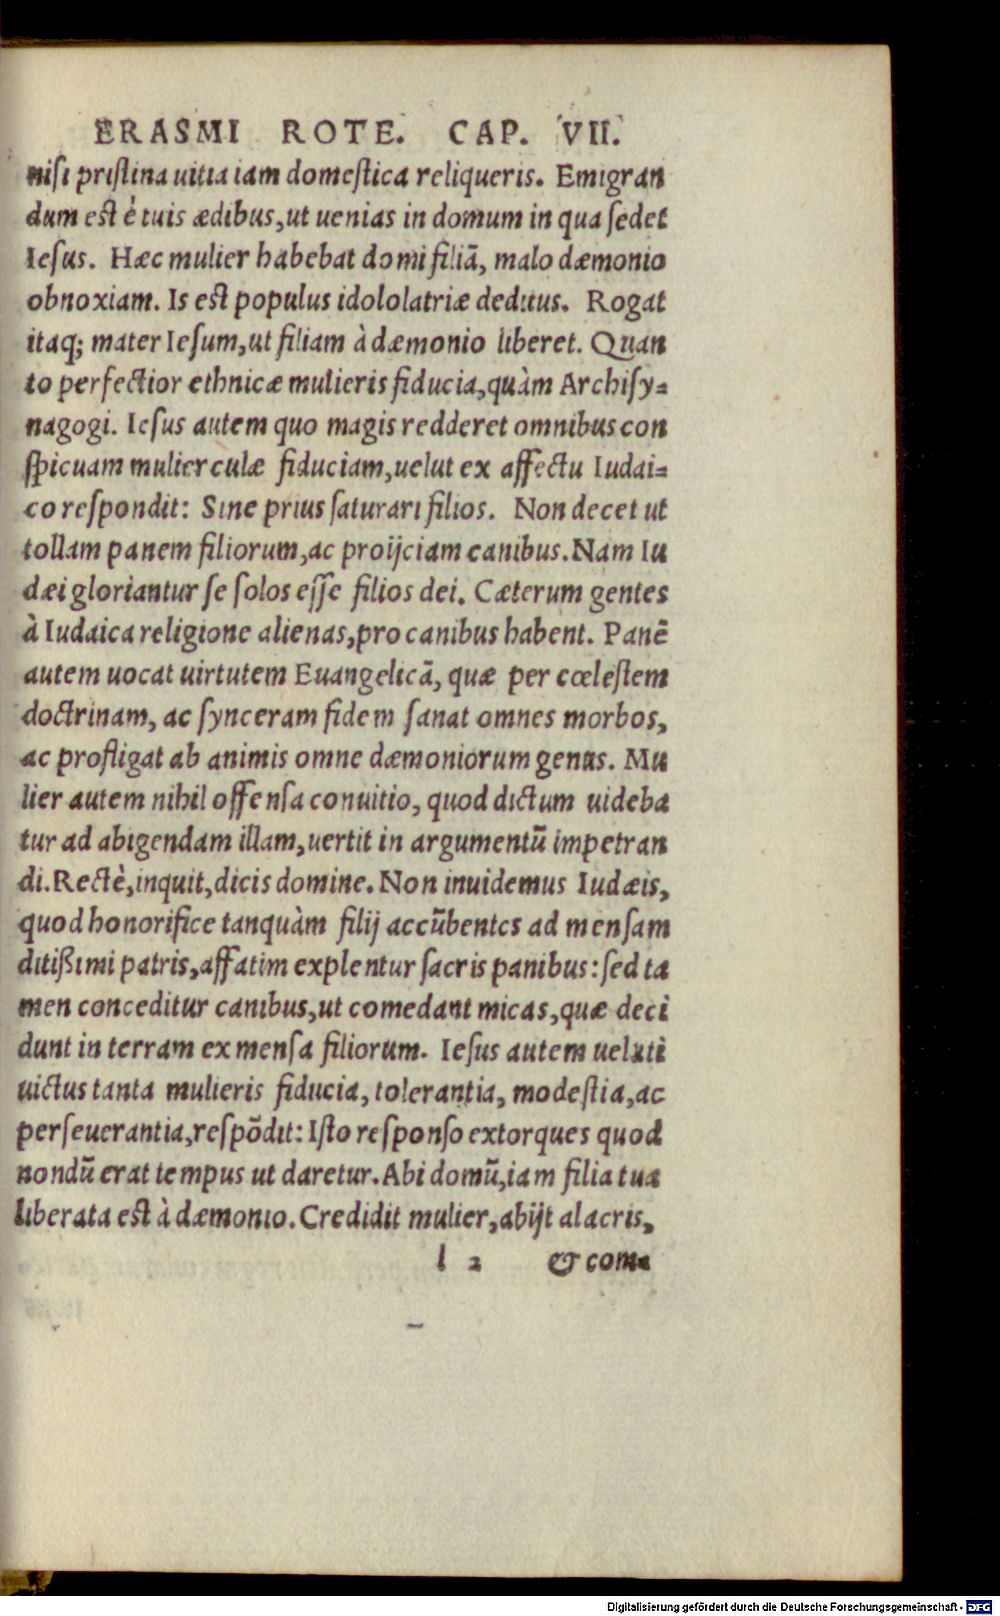 ERASMI ROTE. CAP. VII.
niſi priſtina uitia iam domeſtica reliqueris. Emigran
dum eſt è tuis ædibus, ut uenias in domum in qua ſedet
Ieſus. Hæc mulier habebat domi filiā, malo dæmonio
obnoxiam. Is eſt populus idololatriæ deditus. Rogat
itaq; mater Ieſum, ut filiam à dæmonio liberet. Quan
to perfectior ethnicæ mulieris fiducia, quàm Archiſy⸗
nagogi. Ieſus autem quo magis redderet omnibus con
ſpicuam mulierculæ fiduciam, uelut ex affectu Iudai⸗
co reſpondit: Sine prius ſaturari filios. Non decet ut
tollam panem filiorum, ac proijciam canibus. Nam Iu
dæi gloriantur ſe ſolos eſſe filios dei. Cæterum gentes
à Iudaica religione alienas, pro canibus habent. Panē
autem uocat uirtutem Euangelicā, quæ per cœleſtem
doctrinam, ac ſynceram fidem ſanat omnes morbos,
ac profligat ab animis omne dæmoniorum genus. Mu
lier autem nihil offenſa conuitio, quod dictum uideba
tur ad abigendam illam, uertit in argumentū impetran
di. Rectè, inquit, dicis domine. Non inuidemus Iudæis,
quod honorifice tanquàm filij accūbentes ad menſam
ditißimi patris, affatim explentur ſacris panibus: ſed ta
men conceditur canibus, ut comedant micas, quæ deci
dunt in terram ex menſa filiorum. Ieſus autem ueluti
uictus tanta mulieris fiducia, tolerantia, modeſtia, ac
perſeuerantia, reſpōdit: Iſto reſponſo extorques quod
nondū erat tempus ut daretur. Abi domū, iam filia tua
liberata eſt à dæmonio. Credidit mulier, abijt alacris,
l 2 & com⸗
Digitalisierung gefördert durch die Deutsche Forschungsgemeinschaft - DFG